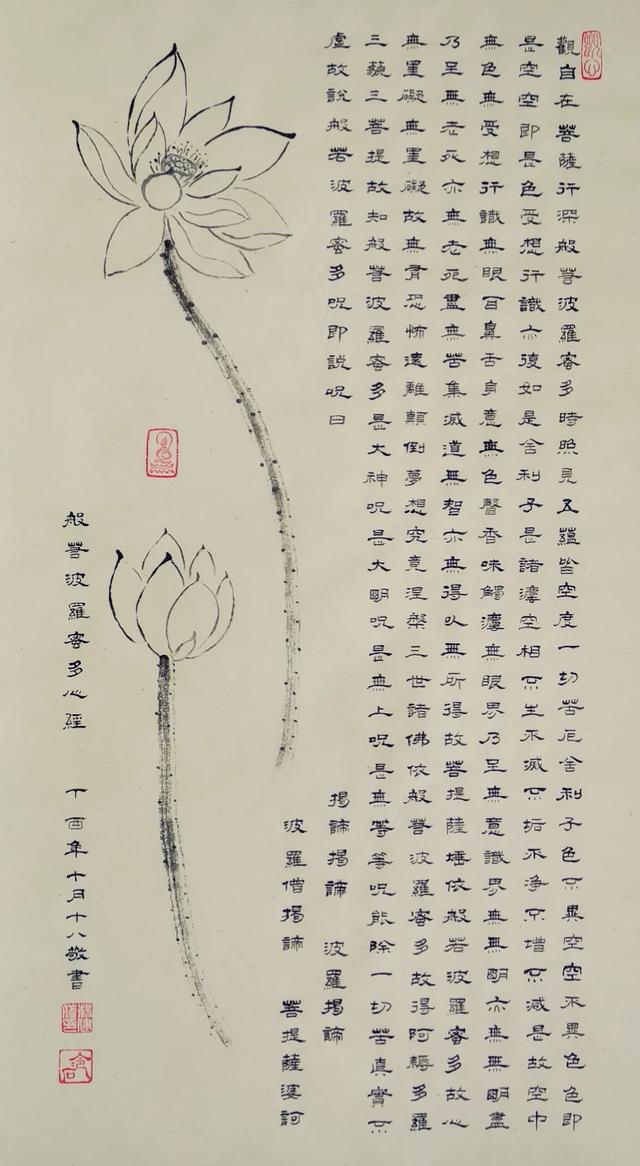 觀自在菩薩行深般若波羅蜜多時照見五蘊皆空度一切苦厄舍利子色不異空空不異色色即
是空空即是色受想行識亦復如是舍利子是諸灋空相不生不滅不垢不淨不增不減是故空中
無色無受想行識無眼耳鼻舌身意無色聲香味觸灋無眼界乃至無意識界無無明亦無無明盡
乃至無老死亦無老死盡無苦集滅道無智亦無得以無所得故菩提薩埵依般若波羅蜜多故心
無罣礙無罣礙故無有恐怖遠離顛倒夢想究竟涅槃三世諸佛依般若波羅蜜多故得阿耨多羅
三藐三菩提故知般若波羅蜜多是大神呪是大明呪是無上呪是無等等呪能除一切苦真實不
虛故說般若波羅蜜多呪即說呪曰
揭諦揭諦 波羅揭諦
波羅僧揭諦 菩提薩婆訶
般若波羅蜜多心經 丁酉年十月十八敬書